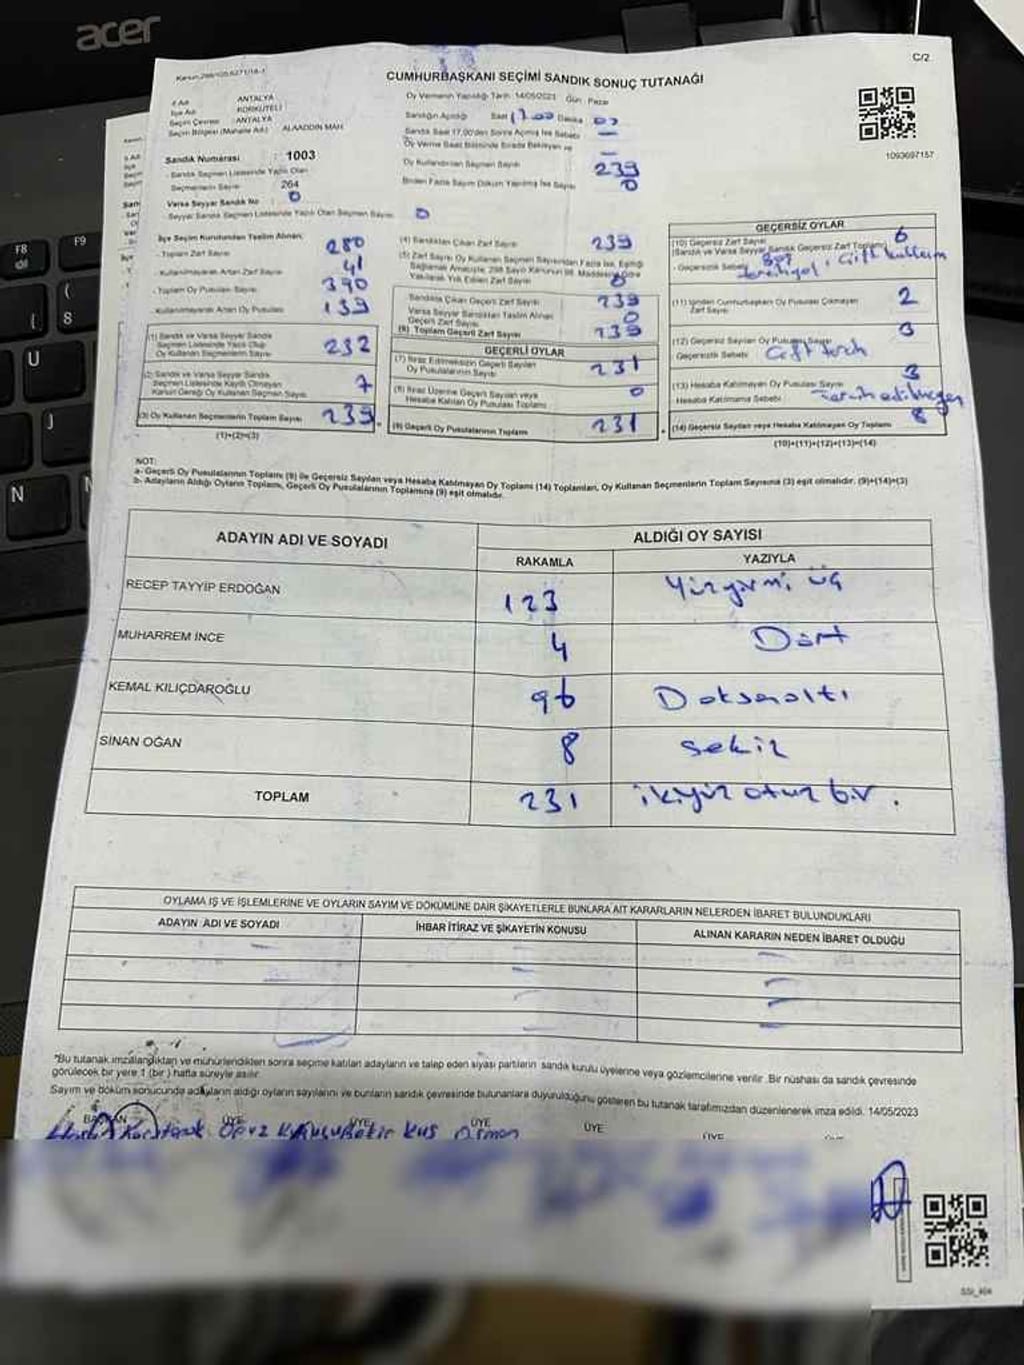 acer
C/2
CUMHURBAŞKANI SEÇİMİ SANDIK SONUÇ TUTANAĞI
İl Adı : ANTALYA
İlçe Adı : KORKUTELİ
Seçim Çevresi : ANTALYA
Seçim Bölgesi (Mahalle Adı) : ALAADDİN MAH.
Oy Vermenin Yapıldığı Tarih: 14/05/2023 Gün: Pazar
Sandığın Açıldığı Saat 17.00 Dakika
Sandık Saat 17.00'den Sonra Açılmış İse Sebebi
Oy Kullandırılan Seçmen Sayısı 239
Birden Fazla Sayım Döküm Yapılmış İse Sayısı 0
1093697157
Sandık Numarası : 1003
Sandık Seçmen Listesinde Yazılı Olan
Seçmenlerin Sayısı 264
Varsa Seyyar Sandık No : 0
Seyyar Sandık Seçmen Listesinde Yazılı Olan Seçmen Sayısı 0
İlçe Seçim Kurulundan Teslim Alınan;
- Toplam Zarf Sayısı 280
- Kullanılmayarak Artan Zarf Sayısı 41
- Toplam Oy Pusulası Sayısı 390
- Kullanılmayarak Artan Oy Pusulası 139
(1) Sandık ve Varsa Seyyar Sandık
Seçmen Listesinde Yazılı Olup
Oy Kullanan Seçmenlerin Sayısı 232
(2) Sandık ve Varsa Seyyar Sandık
Seçmen Listesinde Kayıtlı Olmayan
Kanun Gereği Oy Kullanan Seçmen Sayısı 7
(3) Oy Kullanan Seçmenlerin Toplam Sayısı 239
(1)+(2)=(3)
(4) Sandıktan Çıkan Zarf Sayısı 239
(5) Zarf Sayısı Oy Kullanan Seçmen Sayısından Fazla İse, Eşitliği
Sağlamak Amacıyla; 298 Sayılı Kanunun 98. Maddesine Göre
Yakılarak Yok Edilen Zarf Sayısı 0
Sandıkta Çıkan Geçerli Zarf Sayısı 239
Varsa Seyyar Sandıktan Teslim Alınan
Geçerli Zarf Sayısı 0
(6) Toplam Geçerli Zarf Sayısı 239
GEÇERLİ OYLAR
(7) İtiraz Edilmeksizin Geçerli Sayılan
Oy Pusulalarının Sayısı 231
(8) İtiraz Üzerine Geçerli Sayılan veya
Hesaba Katılan Oy Pusulası Toplamı 0
(9) Geçerli Oy Pusulalarının Toplamı 231
GEÇERSİZ OYLAR
(10) Geçersiz Zarf Sayısı
(Sandık ve Varsa Seyyar Sandık Geçersiz Zarf Toplamı)
- Geçersizlik Sebebi
(11) İçinden Cumhurbaşkanı Oy Pusulası Çıkmayan
Zarf Sayısı 2
(12) Geçersiz Sayılan Oy Pusulası Sayısı 3
Geçersizlik Sebebi
(13) Hesaba Katılmayan Oy Pusulası Sayısı 3
Hesaba Katılmama Sebebi
(14) Geçersiz Sayılan veya Hesaba Katılmayan Oy Toplamı 8
(10)+(11)+(12)+(13)=(14)
NOT:
a- Geçerli Oy Pusulalarının Toplamı (9) ile Geçersiz Sayılan veya Hesaba Katılmayan Oy Toplamı (14) Toplamları, Oy Kullanan Seçmenlerin Toplam Sayısına (3) eşit olmalıdır. (9)+(14)=(3)
b- Adayların Aldığı Oyların Toplamı, Geçerli Oy Pusulalarının Toplamına (9) eşit olmalıdır.
ADAYIN ADI VE SOYADI
ALDIĞI OY SAYISI
RAKAMLA YAZIYLA
RECEP TAYYİP ERDOĞAN 123 Yüzyirmi üç
MUHARREM İNCE 4 Dört
KEMAL KILIÇDAROĞLU 96 Doksanaltı
SİNAN OĞAN 8 sekiz
TOPLAM 231 ikiyüz otuz bir.
OYLAMA İŞ VE İŞLEMLERİNE VE OYLARIN SAYIM VE DÖKÜMÜNE DAİR ŞİKAYETLERLE BUNLARA AİT KARARLARIN NELERDEN İBARET BULUNDUKLARI
ADAYIN ADI VE SOYADI İHBAR İTİRAZ VE ŞİKAYETİN KONUSU ALINAN KARARIN NEDEN İBARET OLDUĞU
*Bu tutanak imzalandıktan ve mühürlendikten sonra seçime katılan adayların ve talep eden siyasi partilerin sandık kurulu üyelerine veya gözlemcilerine verilir. Bir nüshası da sandık çevresinde
görülecek bir yere 1 (bir) hafta süreyle asılır.
Sayım ve döküm sonucunda adayların aldığı oyların sayılarını ve bunların sandık çevresinde bulunanlara duyurulduğunu gösteren bu tutanak tarafımızdan düzenlenerek imza edildi. 14/05/2023
BAŞKAN ÜYE ÜYE ÜYE ÜYE ÜYE
F8
F9
U
J
N
8